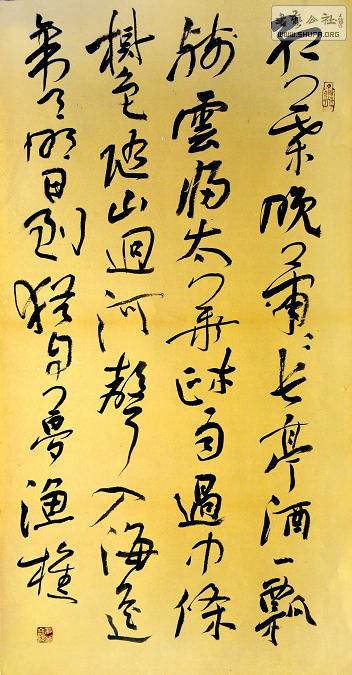 红葉晚萧萧长亭酒一瓢
残雲归太华疎雨過中條
樹色随山迥河聲入海遥
帝乡明日到猶自夢渔樵
书艺公社
WWW.SHUFA.ORG